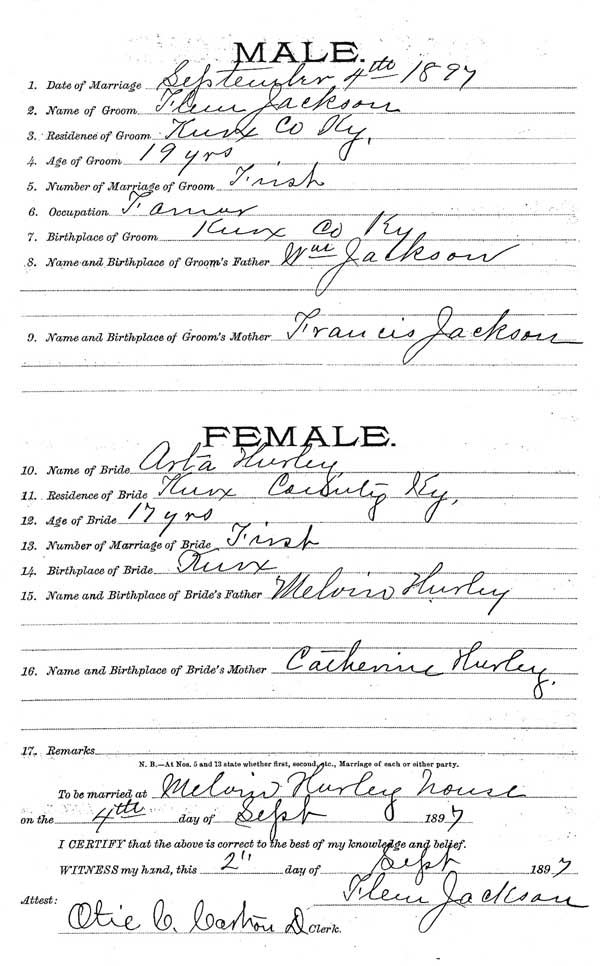 MALE.
1. Date of Marriage September 4th 1897
2. Name of Groom Flem Jackson
3. Residence of Groom Knox Co Ky,
4. Age of Groom 19 yrs
5. Number of Marriage of Groom First
6. Occupation Farmer
7. Birthplace of Groom Knox Co Ky
8. Name and Birthplace of Groom's Father Wm Jackson
9. Name and Birthplace of Groom's Mother Francis Jackson
FEMALE.
10. Name of Bride Arta Hurley
11. Residence of Bride Knox County Ky,
12. Age of Bride 17 yrs
13. Number of Marriage of Bride First
14. Birthplace of Bride Knox
15. Name and Birthplace of Bride's Father Melvin Hurley
16. Name and Birthplace of Bride's Mother Catherine Hurley.
17. Remarks
N. B.—At Nos. 5 and 13 state whether first, second, etc., Marriage of each or either party.
To be married at Melvin Hurley House
on the 4th day of Sept 1897
I CERTIFY that the above is correct to the best of my knowledge and belief.
WITNESS my hand, this 2" day of Sept 1897
Flem Jackson
Attest:
Otie C. D Clerk.